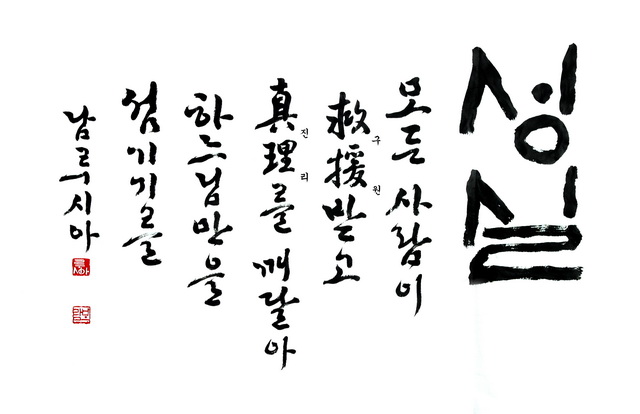 성실
모든 사람이
救援받고
구원
真理를 깨달아
진리
하느님만을
섬기기를
남루시아